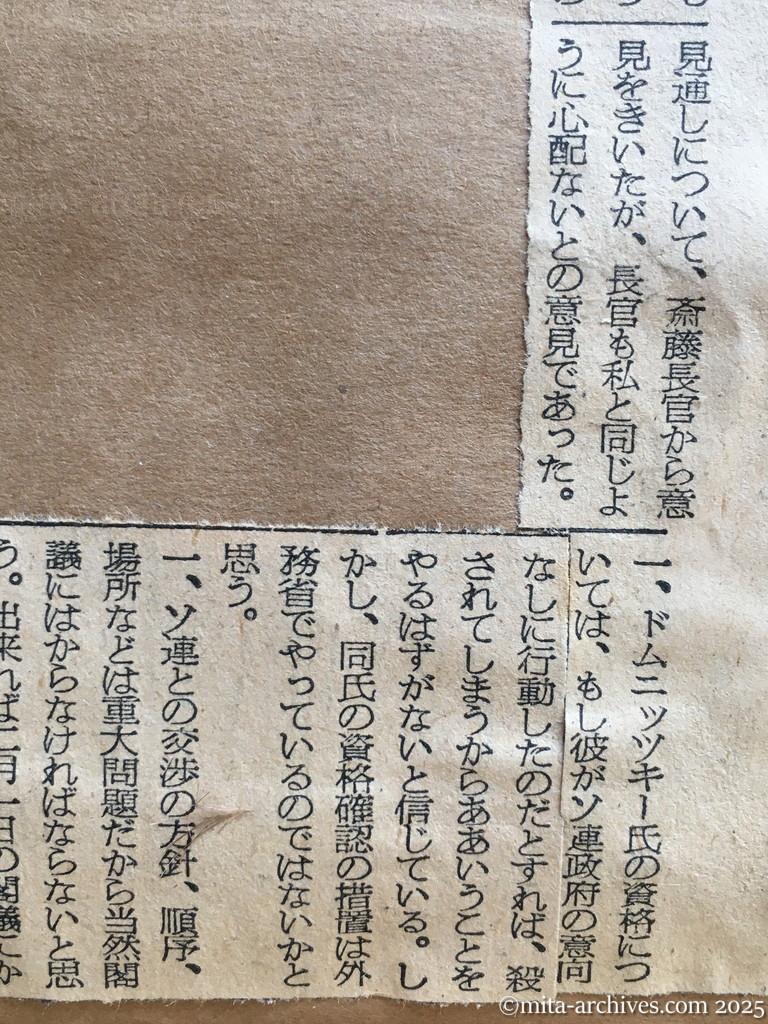 見通しについて、斎藤長官から意
見をきいたが、長官も私と同じよ
うに心配ないとの意見であった。
一、ドムニッツキー氏の資格につ
いては、もし彼がソ連政府の意向
なしに行動したのだとすれば、殺
されてしまうからああいうことを
やるはずがないと信じている。し
かし、同氏の資格確認の措置は外
務省でやっているのではないかと
思う。
一、ソ連との交渉の方針、順序、
場所などは重大問題だから当然閣
議にはからなければならないと思
う。出来れば二月一日の閣議にか
©mita-archives.com 2025